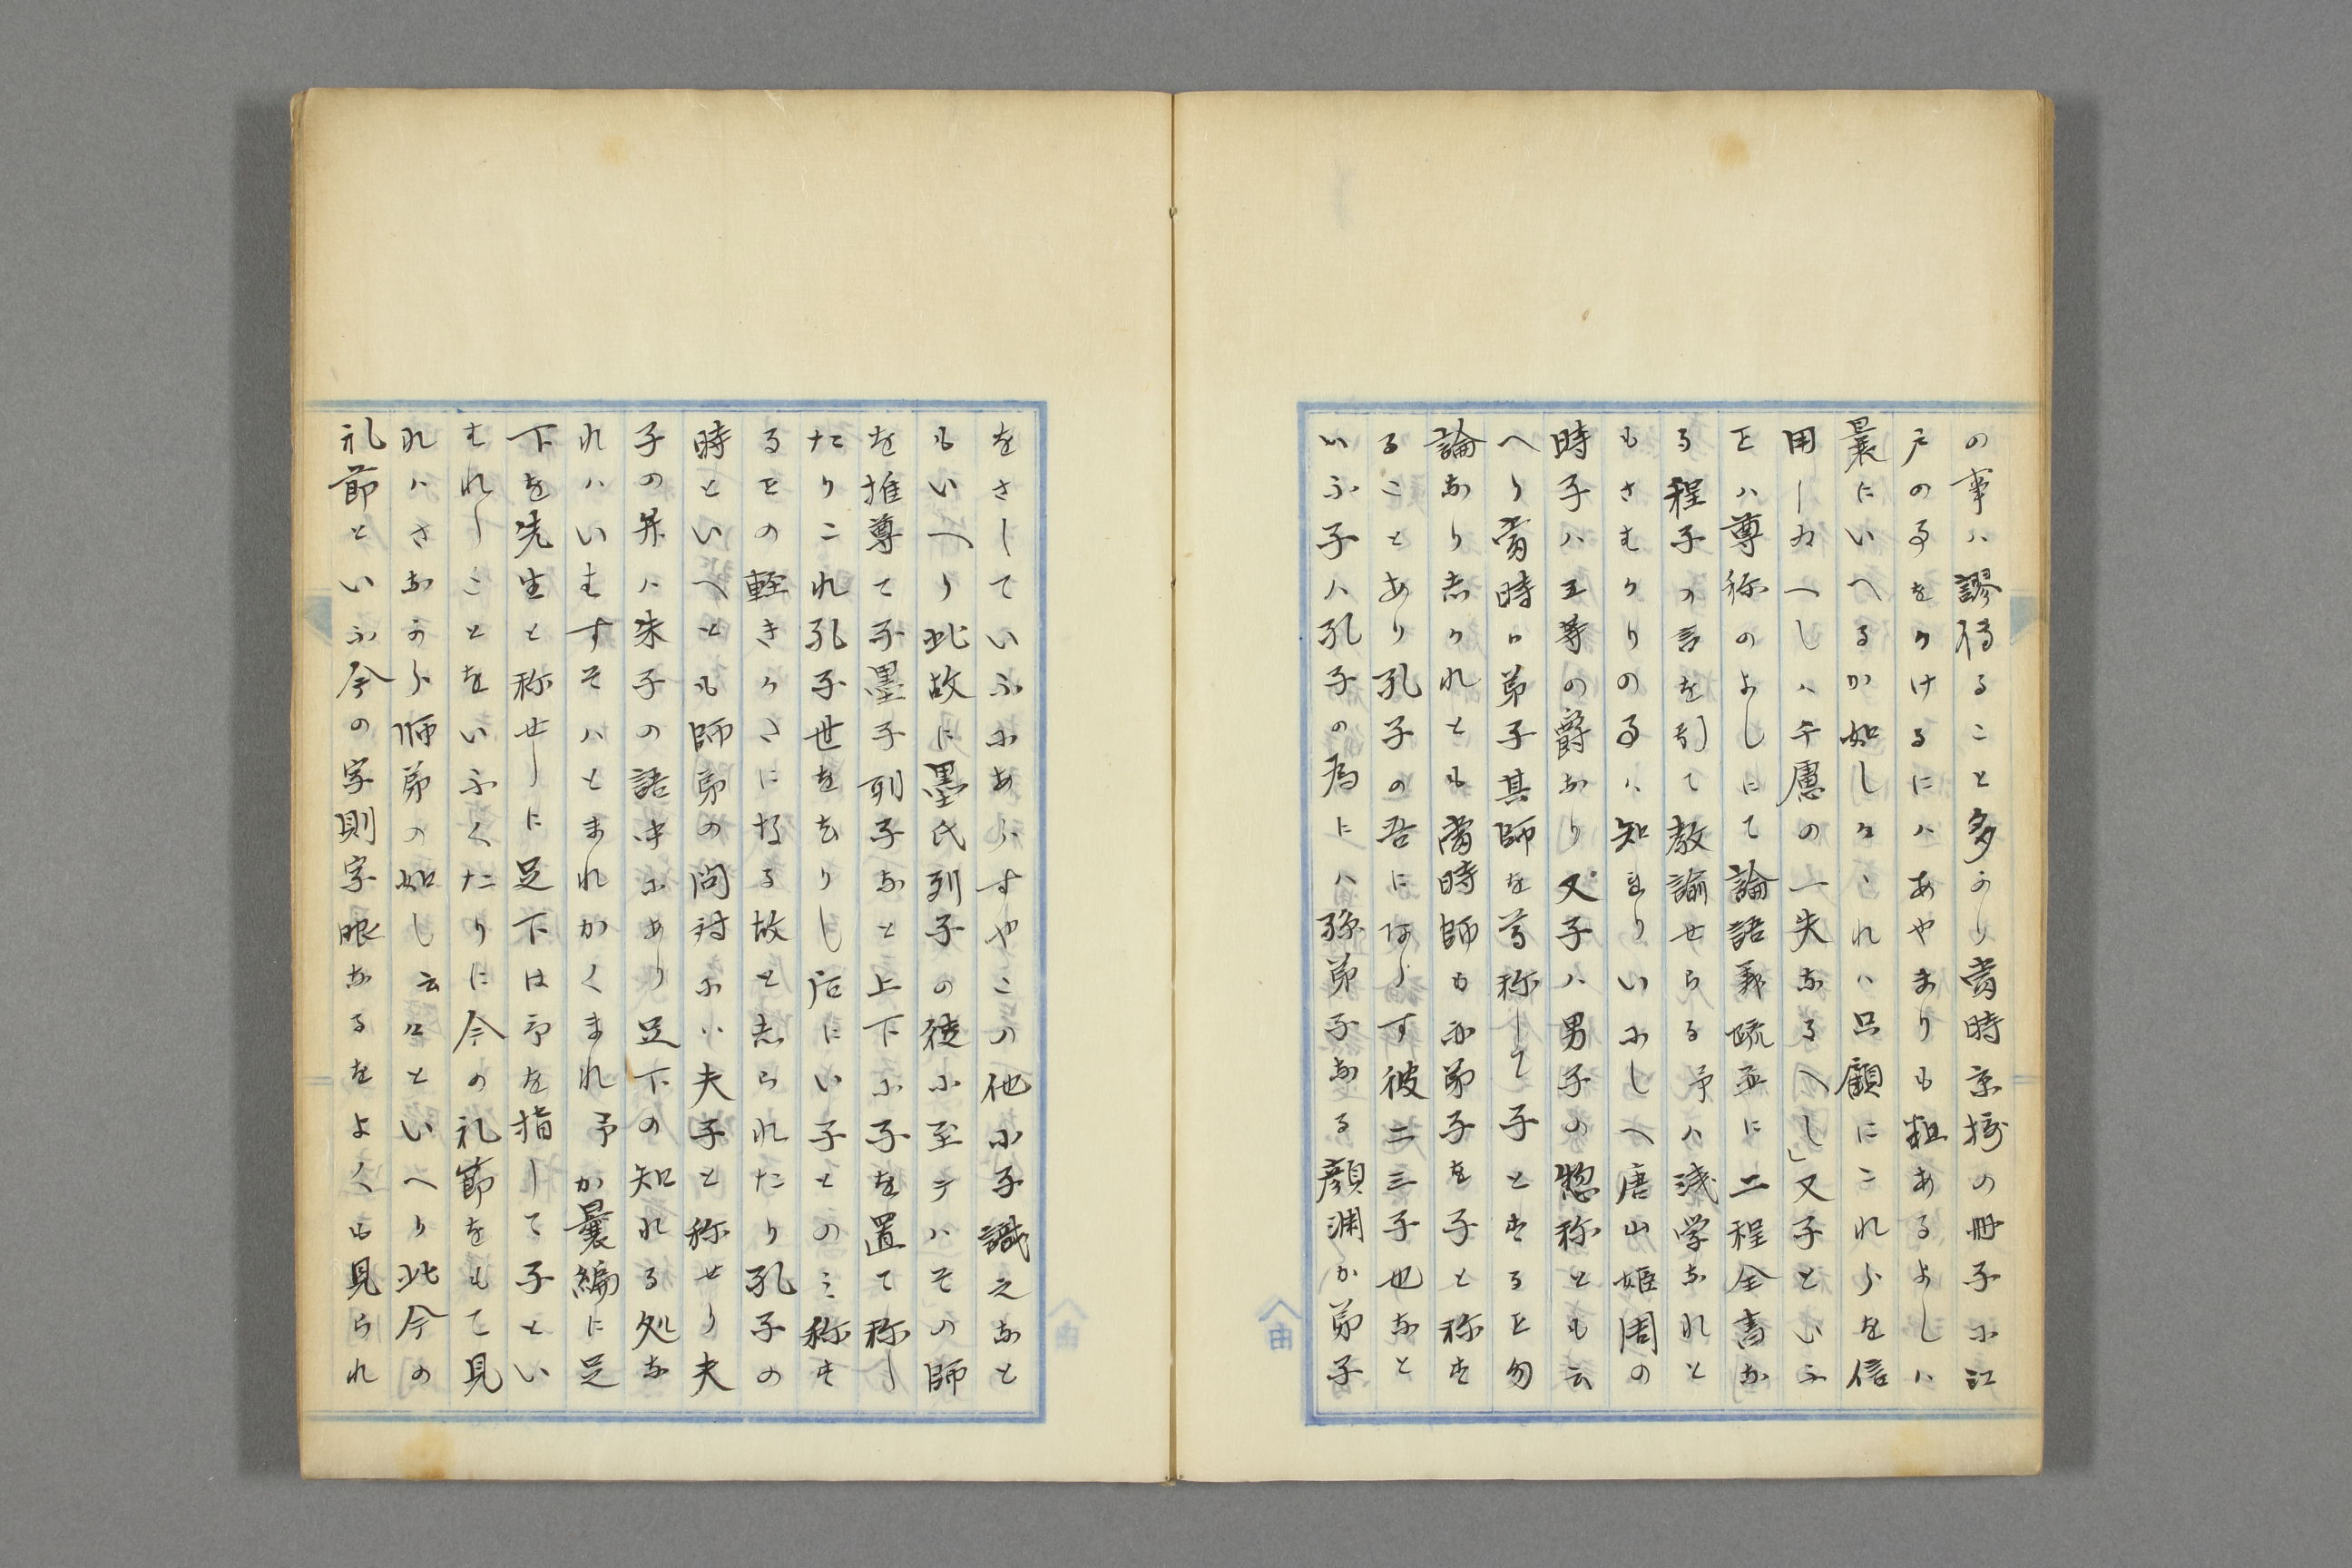 の事ハ謬得ること多かり当時京摂の冊子に江
戸の事をかけるにハあやまりも粗あるよしハ
曩にいへるか如しかゝれハ只顧にこれらを信
用しねへしハ千慮の一失なるへし」又子といふ
をハ尊称のよしにて論語義疏並に二程全書な
る程子の言を引て教諭せらる予ハ浅学なれと
もさむかりの事ハ知れりいにしへ唐山姫周の
時子ハ五等の爵なり又子ハ男子の惣称とも云
へり当時ハ弟子其師を尊称して子とするを勿
論なり然かれとも当時師も亦弟子を子と称す
ることあり孔子の吾にあらす彼二三子也など
いふ子ハ孔子の為にハ孫弟子なる顔淵か弟子
をさしていふにあらすやこの他小子識之なと
もいへり此故に墨氏列子の徒に至テハその師
を推尊て子墨子列子なと上下に子を置て称し
たりこれ孔子世を去りし后にい子とのミ称す
るをの軽きかさになる故と志られたり孔子の
時といへとも師弟の問対にハ夫子と称せり夫
子の弁ハ朱子の語中にあり足下の知れる処な
れハいむすそハとまれかくまれ予か曩編に足
下を先生と称せしに足下は予を指して子とい
むれしことをいふくたりに今の礼節をもて見
れハさなから師弟の如し云々といへり此今の
礼節といふ今の字則字眼なるをよくも見られ